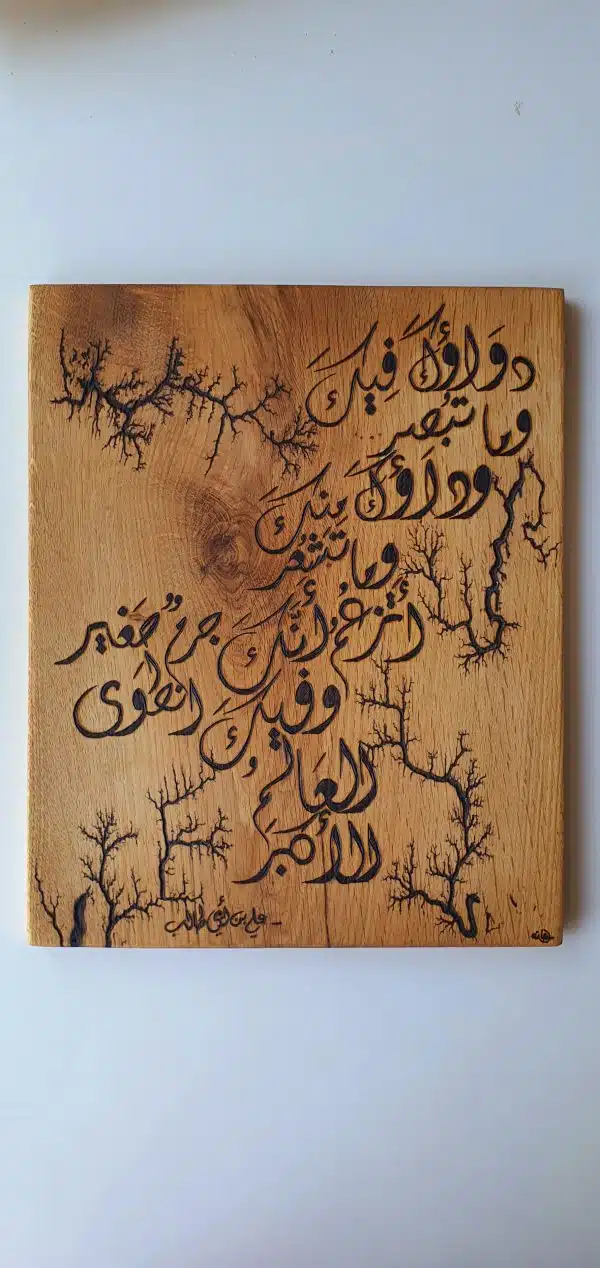 دَوَاؤُكَ فِيكَ
وما تُبْصِر
وداؤكَ مِنكَ
وما تَشْعُر
أتزعُمُ أنَّكَ جرمٌ صَغير
وفيكَ انطَوَى
العَالَمُ
الأكبَر
- علي بن أبي طالب